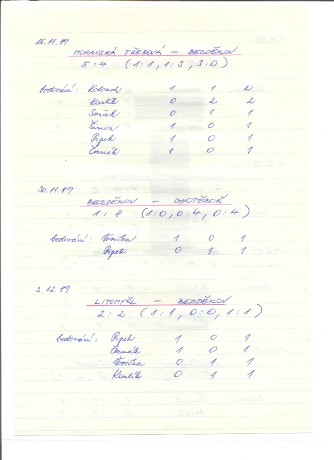 26.11.89
MORAVSKÁ TŘEBOVÁ – BEZDĚKOV
5:4 (1:1, 1:3, 3:0)
bodování: 1 1 2
Kavlík 0 2 2
1 0 1
Šimon 1 0 1
Pipek 1 0 1
Čermák 1 0 1
30.11.89
BEZDĚKOV – CHOTĚBOŘ
1:8 (1:0, 0:4, 0:4)
bodování: 1 0 1
Pipek 0 1 1
2.12.89
LITOMYŠL – BEZDĚKOV
2:2 (1:1, 0:0, 1:1)
bodování: Pipek 1 0 1
Čermák 1 0 1
0 1 1
Kavlík 0 1 1